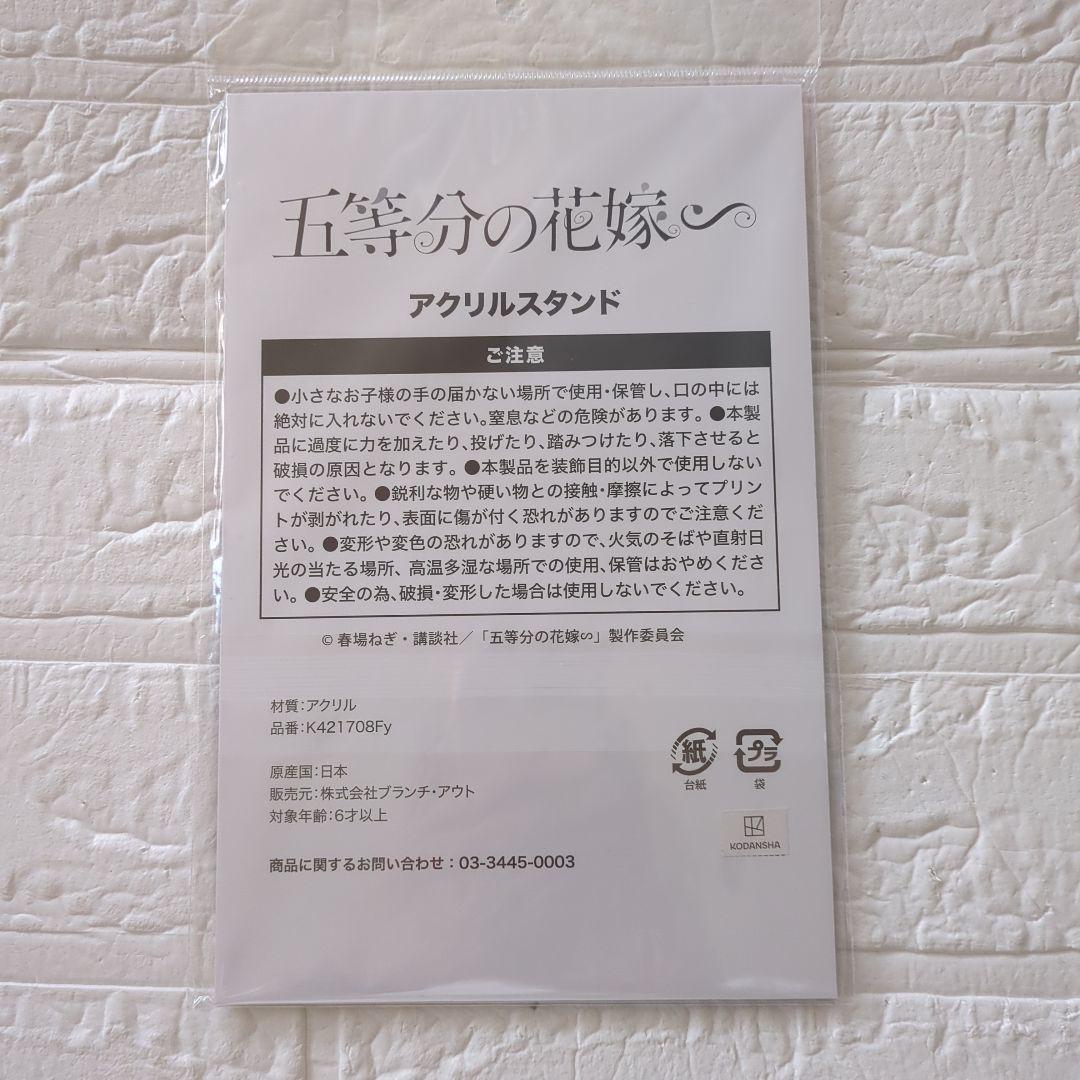 五等分の花嫁∽
アクリルスタンド
ご注意
●小さなお子様の手の届かない場所で使用・保管し、口の中には
絶対に入れないでください。窒息などの危険があります。●本製
品に過度に力を加えたり、投げたり、踏みつけたり、落下させると
破損の原因となります。●本製品を装飾目的以外で使用しない
でください。●鋭利な物や硬い物との接触・摩擦によってプリン
トが剥がれたり、表面に傷が付く恐れがありますのでご注意くだ
さい。●変形や変色の恐れがありますので、火気のそばや直射日
光の当たる場所、高温多湿な場所での使用、保管はおやめくださ
い。●安全の為、破損・変形した場合は使用しないでください。
© 春場ねぎ・講談社／「五等分の花嫁∽」製作委員会
材質：アクリル
品番：K421708Fy
原産国：日本
販売元：株式会社ブランチ・アウト
対象年齢：6才以上
商品に関するお問い合わせ：03-3445-0003
紙
台紙
プラ
袋
KODANSHA